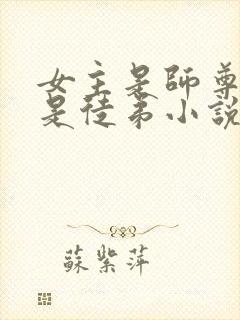 女主是師尊
是徒弟小說
蘇紫萍